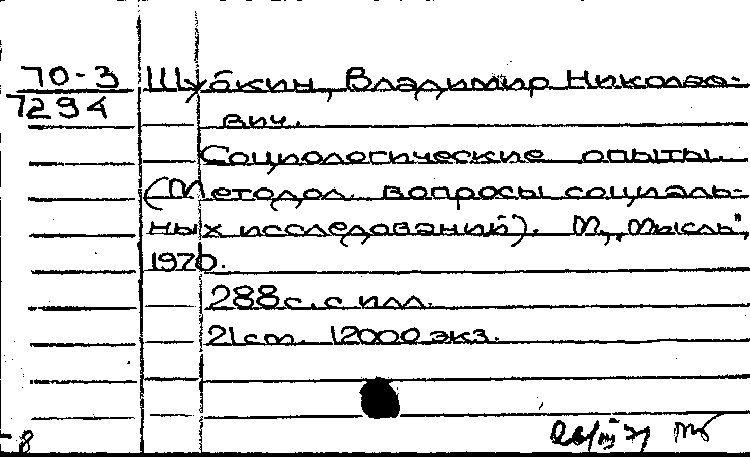 70-3 Шубкин, Владимир Николае-
7294
вич.
Социологические опыты.
(Методол. вопросы социаль-
ных исследований). М., "Мысль",
1970.
288 с. с илл.
21 см. 12000 экз.
8